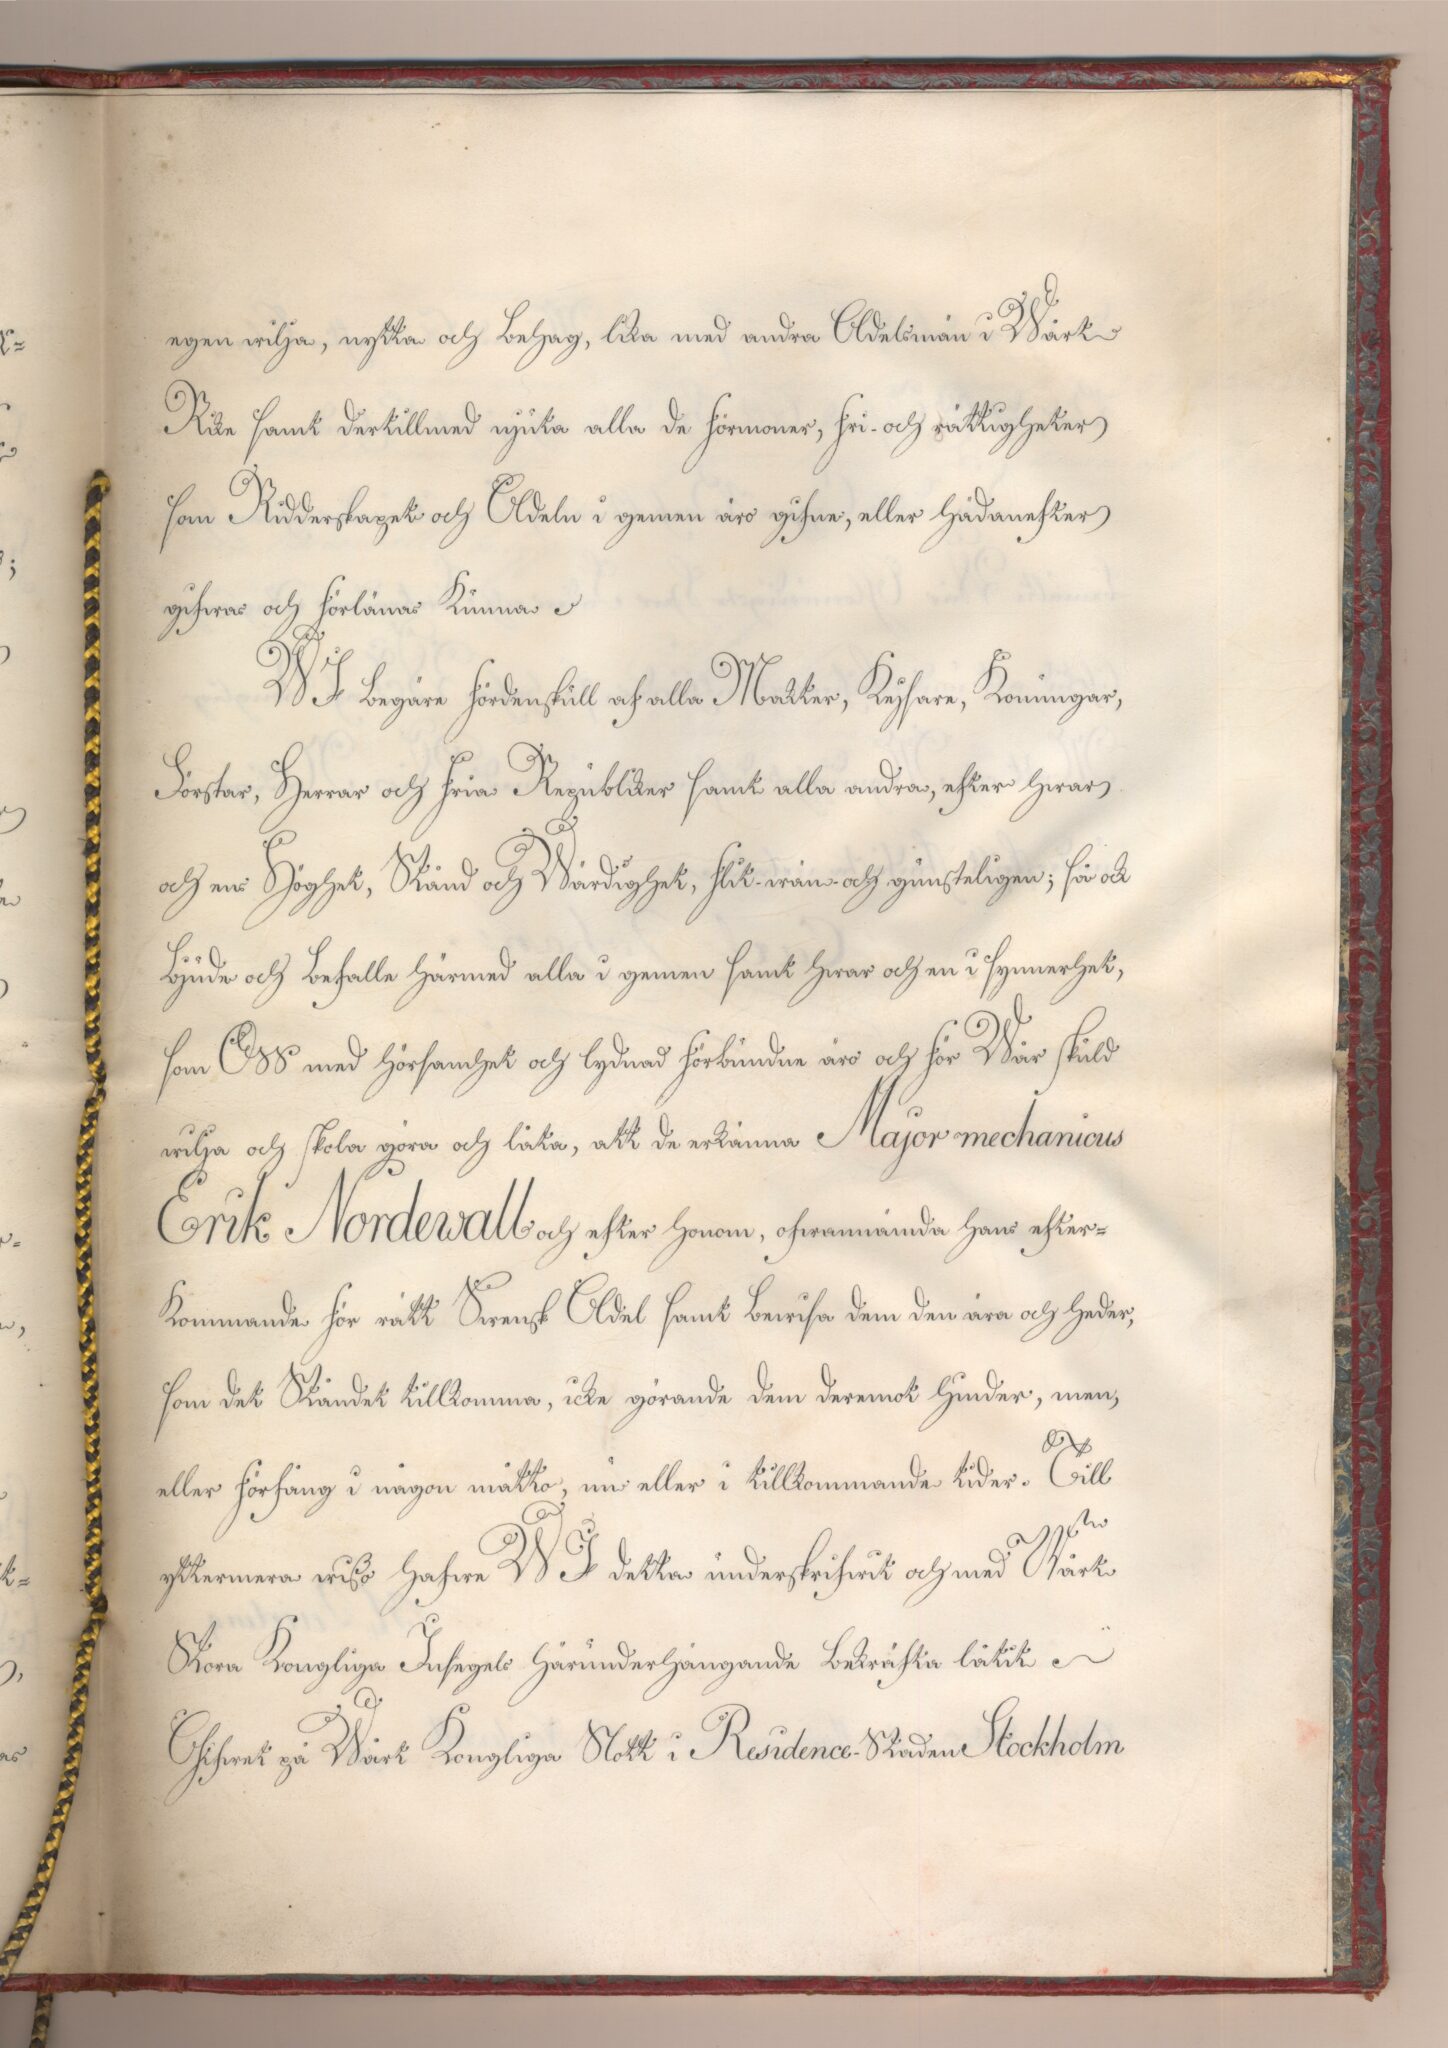 egen wilja, nytta och Behag, lika med andra Adelsmän i Wårt
Rike samt dertillmed njuta alla de förmoner, fri- och rättigheter
som Ridderskapet och Adeln i gemen äro gifne, eller hädanefter
gifwas och förlänas kunna
WJ begäre fördenskull af alla Makter, Keysare, Konungar,
Förstar, Herrar och fria Republiker samt alla andra, efter hwar
och ens Höghet, Stånd och Wärdighet, flit- wän- och gunsteligen; så ock
bjude och befalle härmed alla i gemen samt hwar och en i synnerhet,
som Oss med hörsamhet och lydnad förbundne äro och för Wår skuld
wilja och skola göra och låta, att de erkänna Major mechanicus
Erik Nordewall och efter honom, ofwannämnda hans efter=
kommande för rätt Swensk Adel samt bewisa dem den ära och heder,
som det Ståndet tillkomma, icke görande dem deremot hinder, men,
eller förfång i någon måtto, nu eller i tillkommande tider. Till
yttermera wisso hafwe WJ detta underskrifwit och med Wårt
Stora Kongliga Insegels härunderhängande bekräfta låtit
Gifwet på Wårt Kongliga Slott i Residence-Staden Stockholm